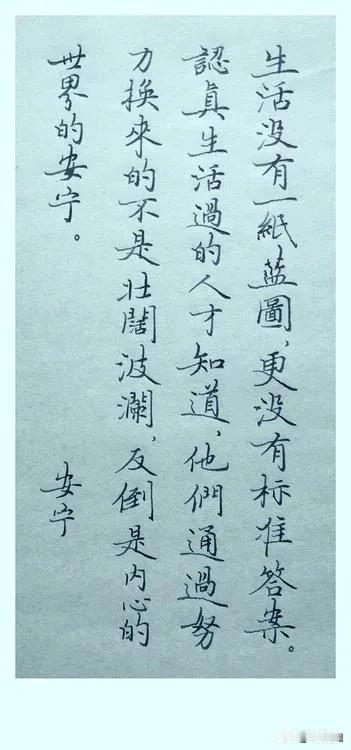 生活没有一紙蓝圖，更没有标准答案。
認真生活過的人才知道，他們通過努
力换來的不是壮闊波瀾，反倒是内心的
世界的安宁。
安宁